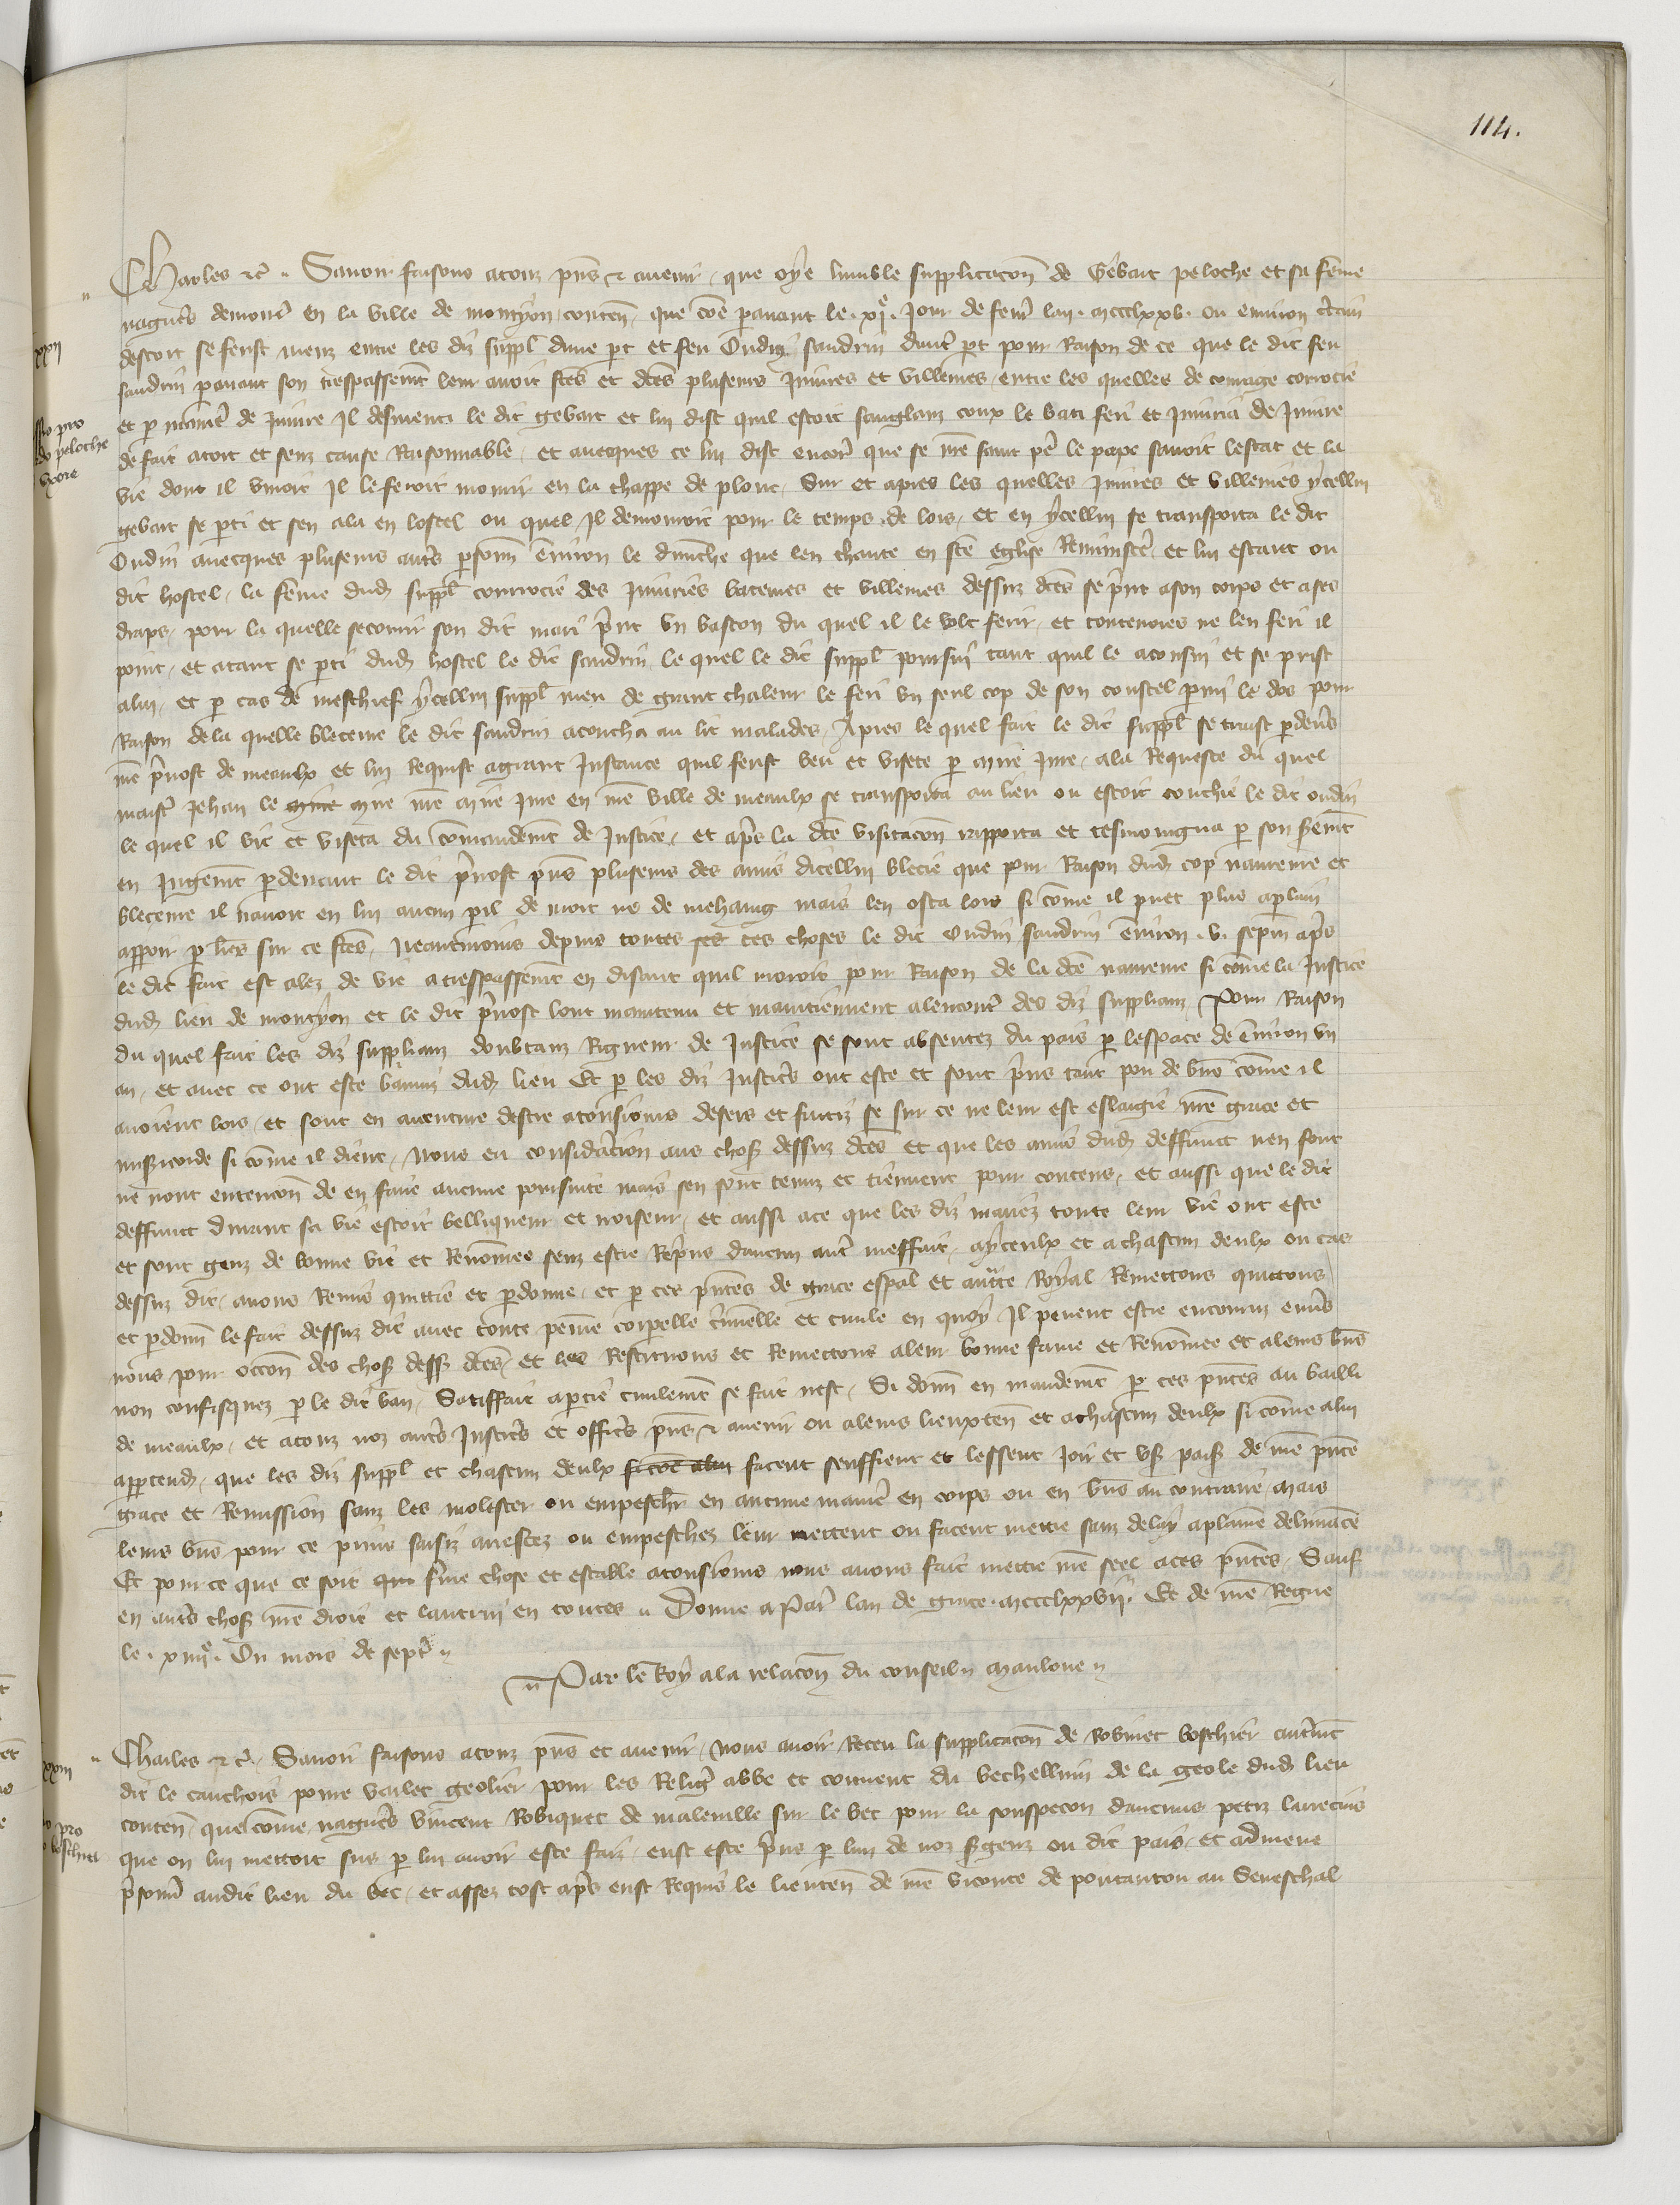 114.
Charles etc. Savoir faisons a touz pns et avenir, que oye lumble supplicacon de Gebart peloche et sa feme
nagueres demour en la ville de montyon, conten, que coe paravant le .xj.e Jour de fevr lan mccclxxv. ou environ certain
descort se feust meuz entre les diz suppl dune pt et feu Oudin saudrin dautr pt pour Raison de ce que le dit feu
saudrin pavant son trespassemt leur avoit fces et dces pluseurs Iniures et villenies, entre les quelles de courage corrocie
et p manie de Iniure Il desmenti le dit gebart et lui dist quil estoit sanglanz coux le bati feri et Iniuria de Iniure
de fait atort et senz cause Raisonnable, et avecques ce lui dist encor que se nre saint pe le pape savoit lestat et la
vie dont il vivoit Il le feroit mourir en la chappe de plont, Sur et apres les quelles Iniures et villenies ycellui
gebart se pti et sen ala en lostel ou quel Il demouroit pour le temps de lors, et en ycellui se transporta le dit
Oudin avecques pluseurs auts psonn environ le dimenche que len chante en ste eglise Reminiscere, et lui estant ou
dit hostel, la feme dud suppl courrocie des Iniuries bateures et villenies dessuz dces se print a son corps et a ses
draps, pour la quelle secourir son dit mari print un baston du quel il le volt ferir, et toutevoies ne len feri il
point, et atant se pti dud hostel le dit saudrin le quel le dit suppl poursui tant quil le aconsui et se prist
a lui, et p cas de meschief ycellui suppl meu de grant chaleur le feri un seul cop de son coustel parmi le dos pour
Raison de la quelle bleceure le dit saudrin acoucha au lit malades, Apres le quel fait le dit suppl se traist pdevs
nre prevost de meaulx et lui Requist a grant Instance quil feust veu et visete p mire Jure, a la Requeste du quel
maistr Jehan le mire nre mire Jure en nre ville de meaulx se transporta au lieu ou estoit couchie le dit oudin
le quel il vit et viseta du comandemt de Justice, et aps la dce visitacon rapporta et tesmoingna p son sermt
en Jugemt pdevant le dit prevost pns pluseurs des amis dicellui blecie que pour Raison dud cop navreure et
bleceure il navoit en lui aucun pil de mort ne de mehaing mais len osta lors si come il puet plus aplain
apparoir p lres sur ce fces, Neantmoins depuis toutes ces choses le dit Oudin saudrin environ .v. sepm aps
le dit fait est alez de vie a trespassemt en disant quil moroit pour Raison de la dce navreure si come la Justice
dud lieu de montyon et le dit prevost lont maintenu et maintiennent alencontr des diz supplianz, Pour Raison
du quel fait les diz supplianz doubtanz Rigueur de Justice se sont absentez du pais p lespace de environ un
an, et avec ce ont este baniz dud lieu Et p les diz Justicrs ont este et sont prins tant pou de bns come il
avoient lors, et sont en aventure destre atousiours desers et fuitiz se sur ce ne leur est eslargie nre grace et
misicorde si come il dient, Nous eu consideracion aus choses dessuz dces et que les amis dud deffunct nen font
ne nont entencon de en faire aucune poursuite mais sen sont tenuz et tiennent pour contens, et aussi que le dit
deffunct durant sa vie estoit belliqueur et noiseur, et aussi a ce que les diz mariez toute leur vie ont este
et sont genz de bonne vie et Renomee senz estre Reprins daucun autr meffait, a yceulx et a chascun deulx ou cas
dessuz dit, avons Remis quittie et pdonne, et p ces pntes de grace espal et auctte Royal Remettons quittons
et pdonn le fait dessuz dit avec toute peine corporelle criminelle et civile en quoy Il pevent estre encouruz envs
nous pour occon des choses dess dces, et les Restituons et Remettons a leur bonne fame et Renomee et a leurs bns
non confisquez p le dit ban, Satiffait a ptie civilemt se fait nest, Si donn en mandemt p ces pntes au bailli
de meaulx, et a touz noz auts Justicrs et officrs pns et avenir ou a leurs lieuxten et a chascun deulx si come a lui
apptend, que les diz suppl et chascun deulx si coe a lui facent seuffrent et lessent Joir et user paisiblement de nre pnte
grace et Remission sanz les molester ou empeschr en aucune manie en corps ou en bns au contraire Mais
leurs bns pour ce prins saisiz arrestez ou empeschez leur mettent ou facent mettre sanz delay a plaine delivrance
Et pour ce que ce soit ferme chose et estable a tousiours nous avons fait mettre nre seel a ces pntes, Sauf
en auts choses nre droit et lautrui en toutes Donne a Paris lan de grace mccclxxvij. Et de nre Regne
le .xiiij.e Ou mois de sept
Par le Roy a la relacon du conseil Manloue
Charles etc. Savoir faisons a touz pns et avenir, Nous avoir Receu la supplicacon de Robinet boschier autremt
dit le cauchois povre varlet geolier pour les Religx abbe et couvent du bechellouin de la geole dud lieu
conten, que come nagueres vincent Robiquet de maleville sur le bec pour la souspecon daucuns petiz larrecins
que on lui mettoit sus p lui avoir este faiz, eust este prins p lun de noz sergenz ou dit pais, et admene
prisonnier audit lieu du bec, et assez tost aps eust Requis le lieuten de nre viconte de pontautou au Seneschal